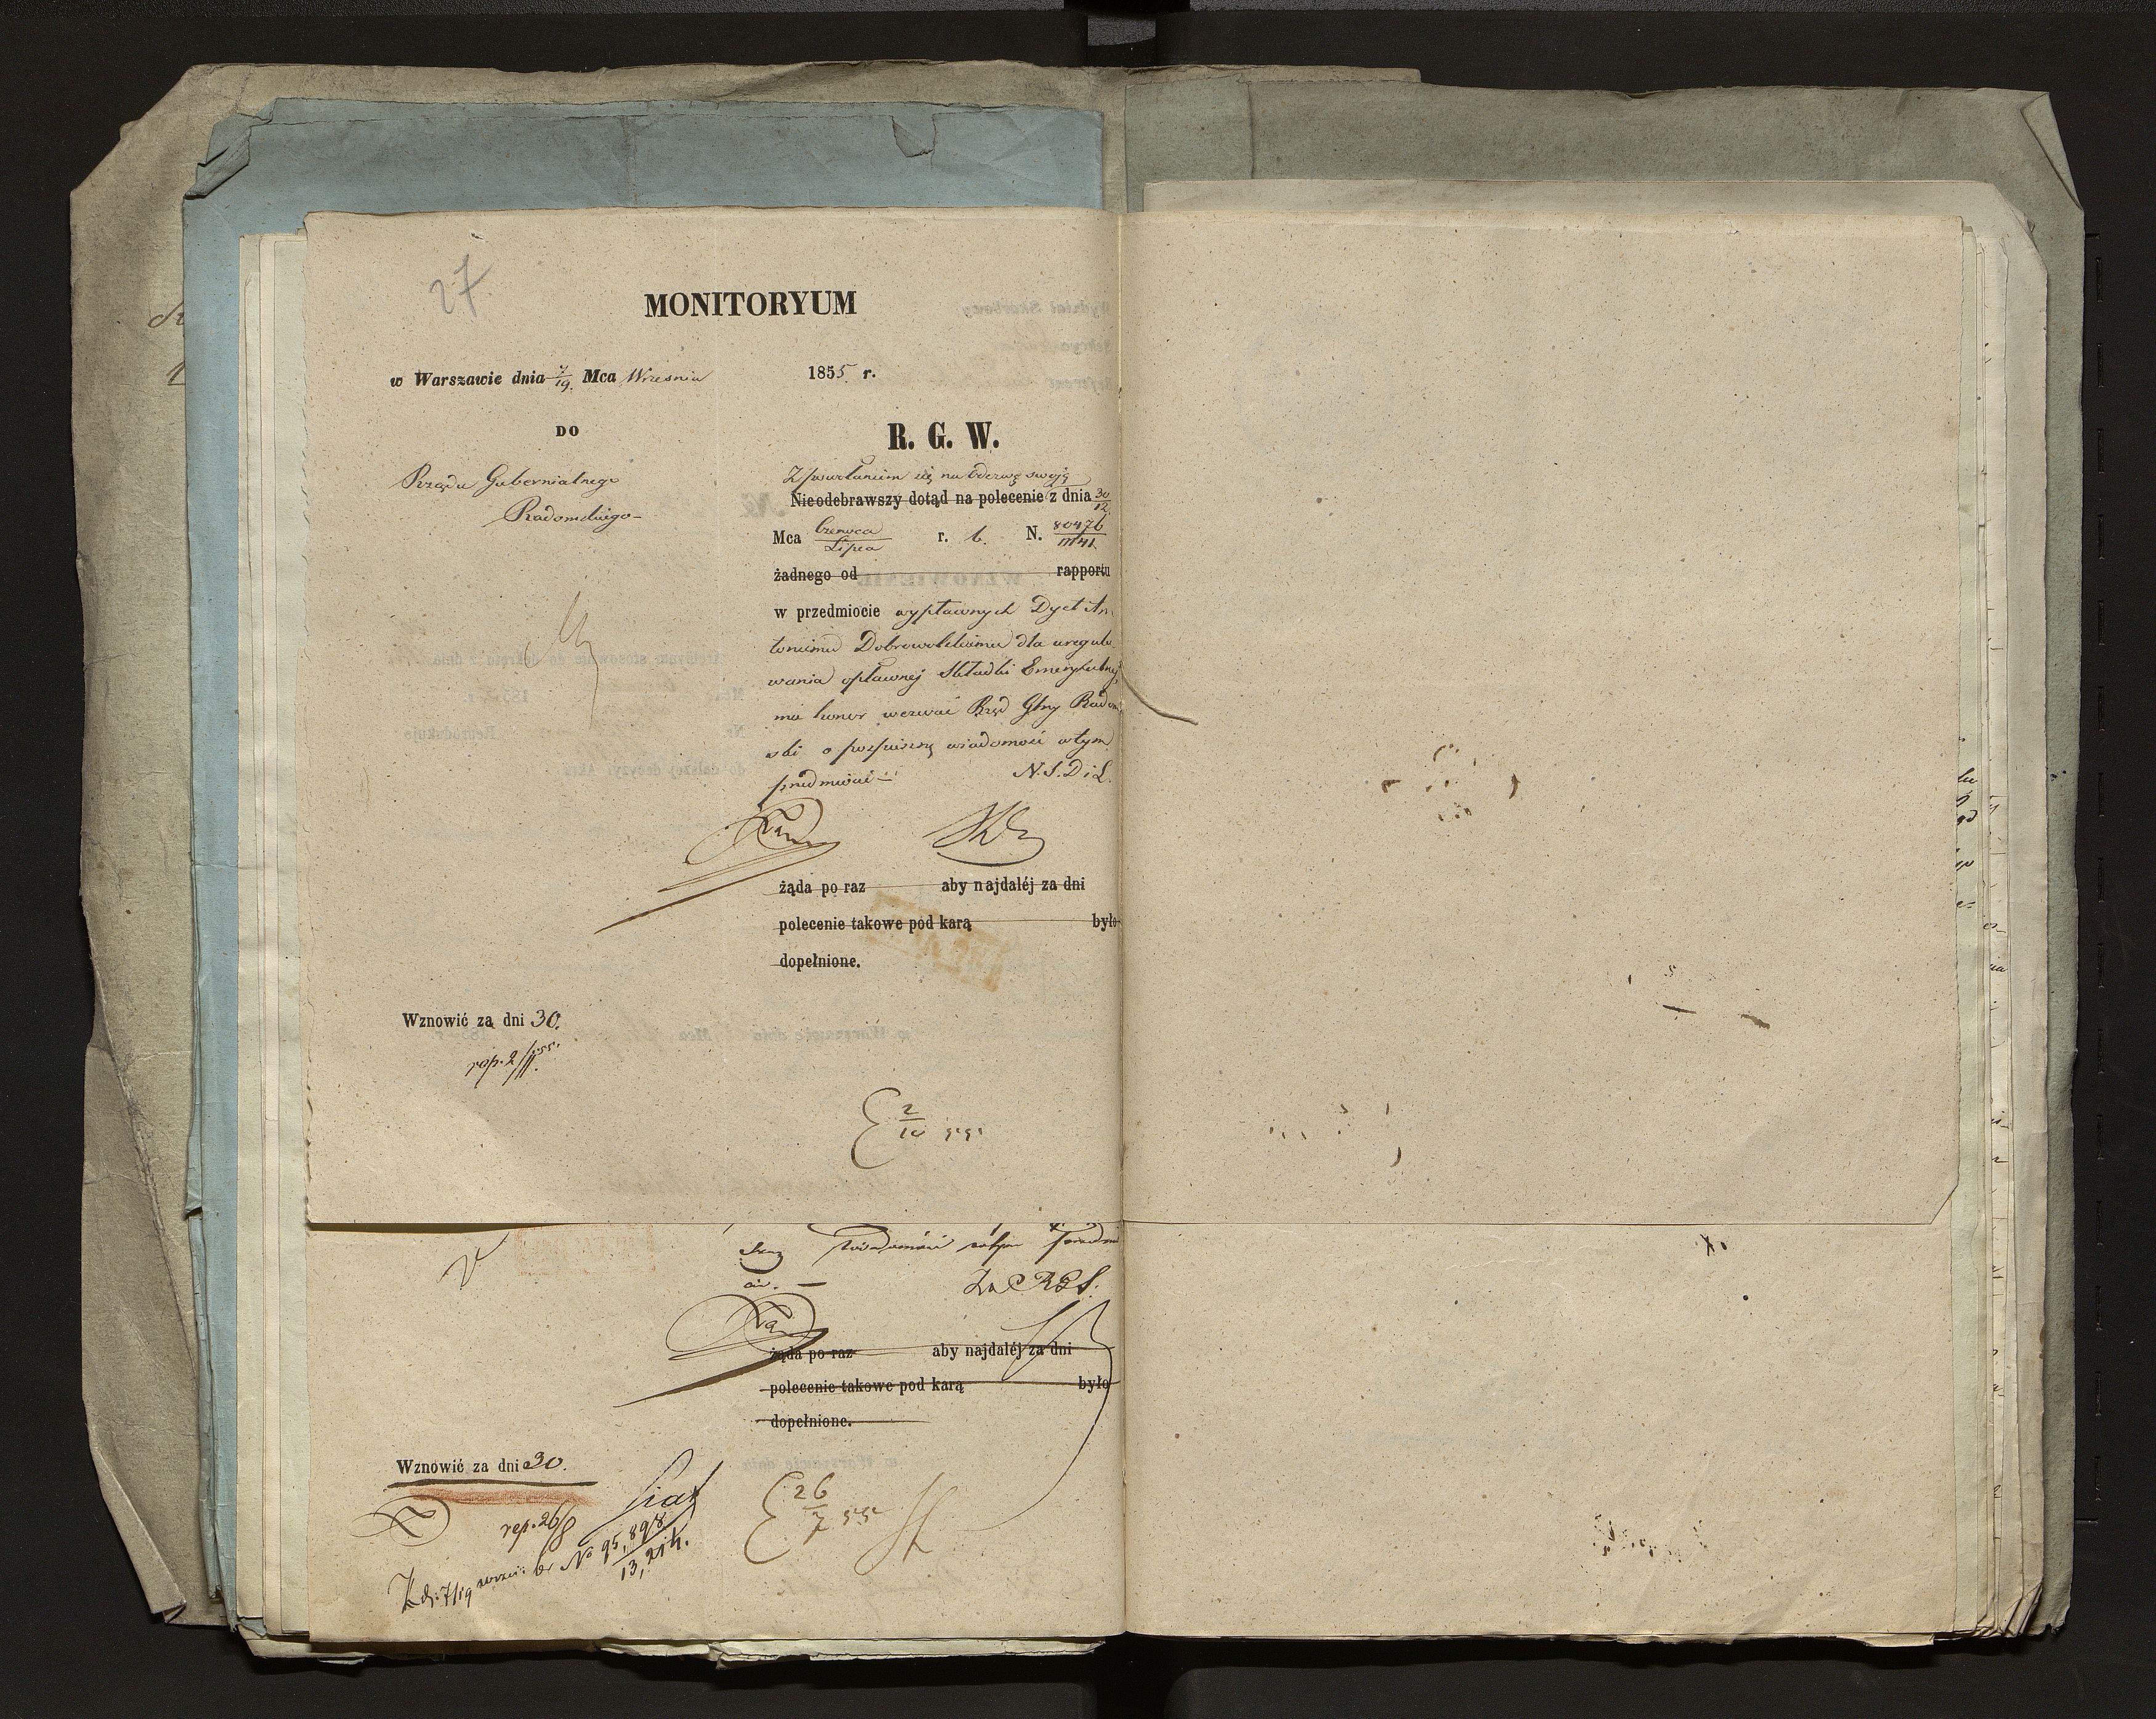 27
MONITORYUM
w Warszawie dnia 7/19. Mca Wrzesnia 1855 r.
DO
R. G. W.
Rządu Gubernialnego
Radomskiego
Z powołaniem się na odezwę swoją
Nieodebrawszy dotąd na polecenie z dnia 30/12
Mca Czerwca/Lipca r. b. N. 80476/11741
żadnego od rapportu
w przedmiocie wypławnych Dyet An
toniemu Dobrowolskiemu dla uregulo
wania opławnej Składki Emerytalnej
ma honor wezwać Rząd Gbny Radom
ski o pośpieszną wiadomość w tym
przedmiocie
N. S. D i L.
żąda po raz aby najdaléj za dni
polecenie takowe pod karą było
dopełnione.
Wznowić za dni 30.
rep. 2/11 55.
2/10 55
wiadomość w tym przedmi
cie.
Za
żąda po raz aby najdaléj za dni
polecenie takowe pod karą było
dopełnione.
Wznowić za dni 30.
26/7 55
rep. 26/8
Z d: 7/19 wrześ: br No 95,898/13,214.